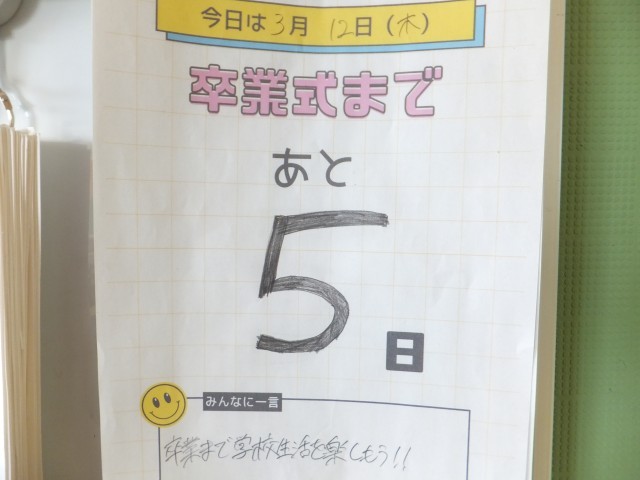 今日は3月 12日(木)
卒業式まで
あと
5
日
みんなに一言
卒業まで学校生活を楽しもう!!